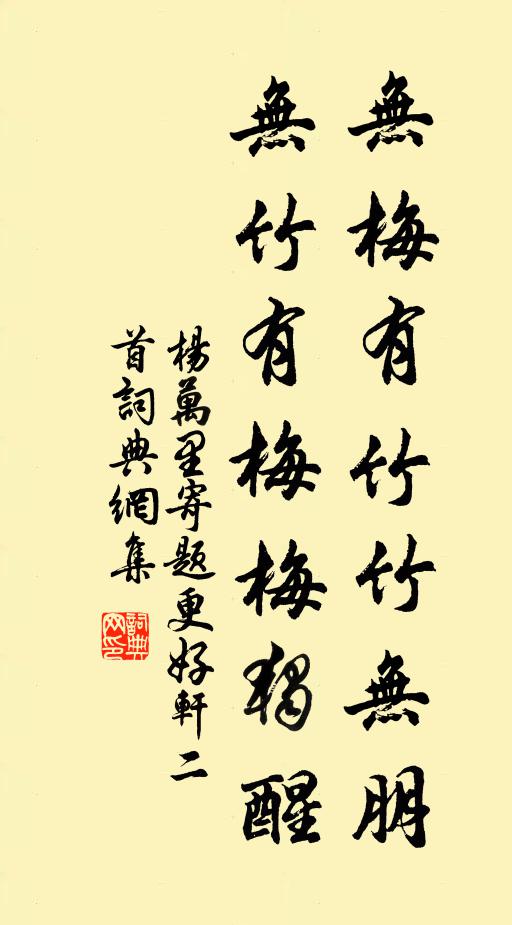 無梅有竹竹無朋
無竹有梅梅獨醒
楊萬里寄題更好軒二
首詞典網集
詞典
网印